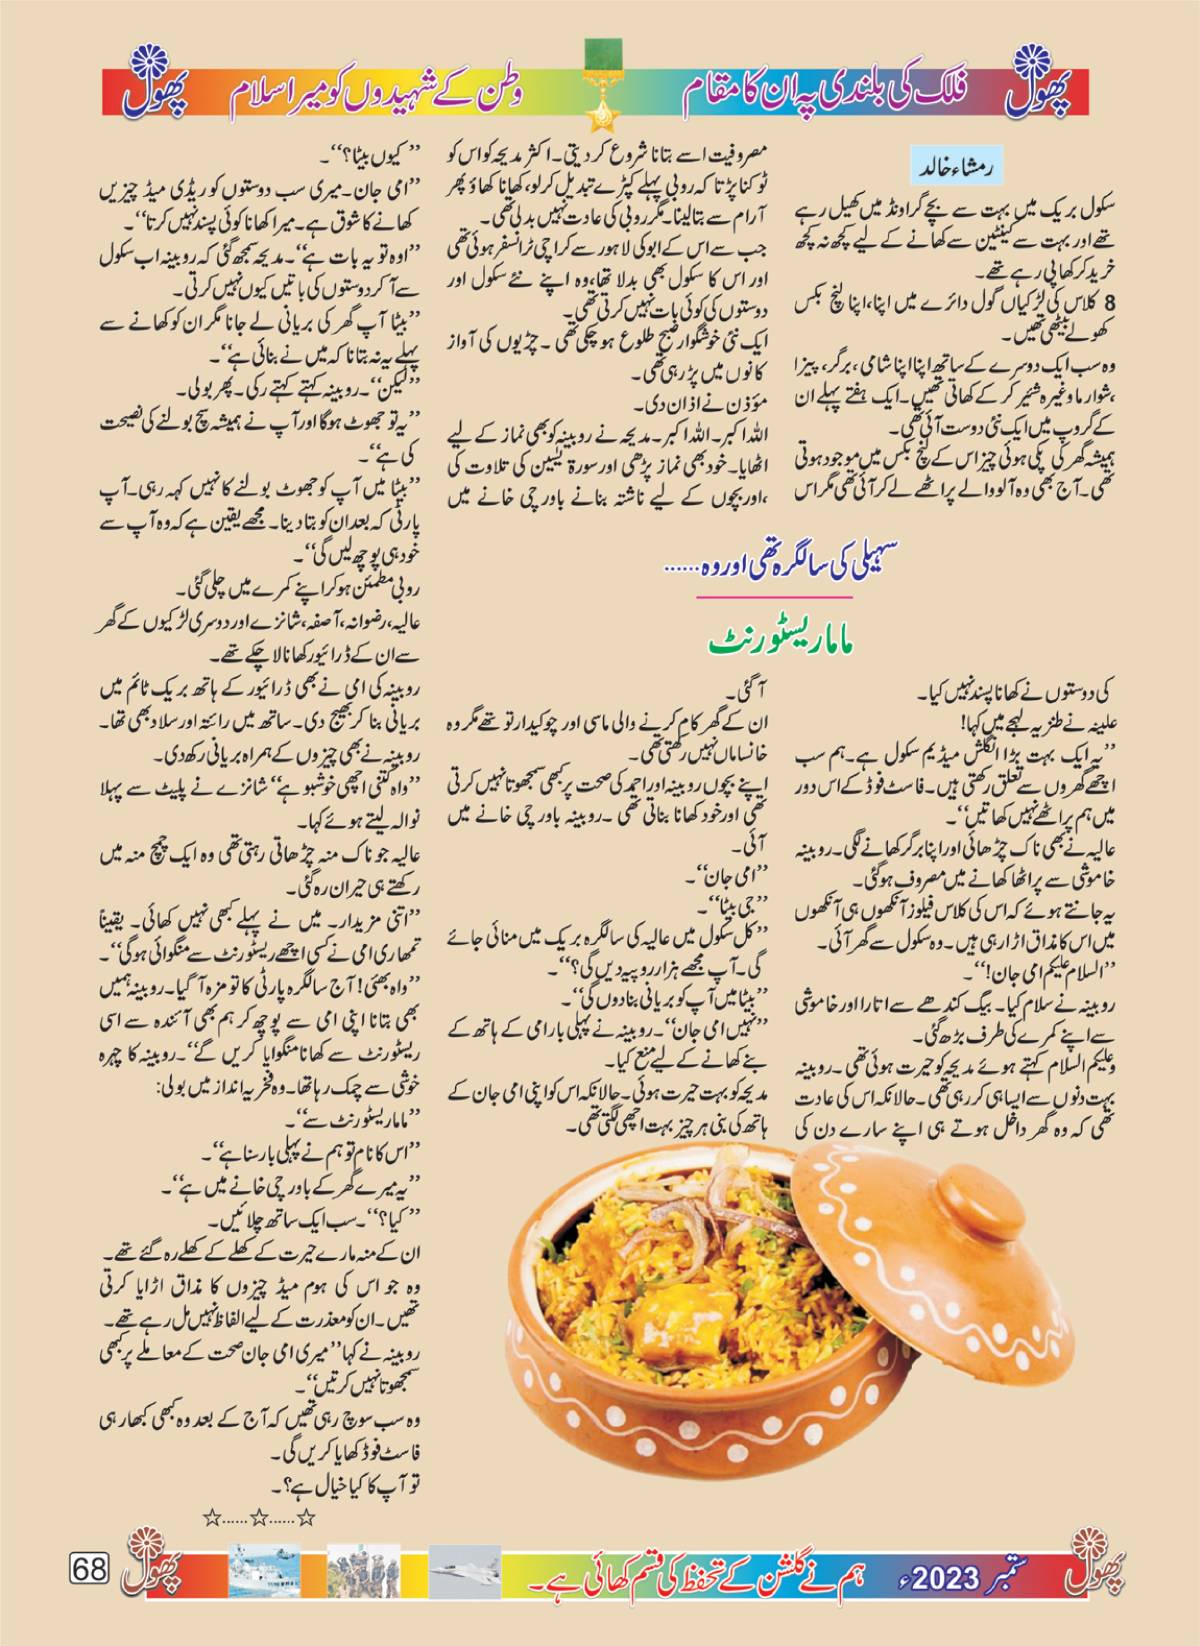 پھول
فلک کی بلندی پہ ان کا مقام
وطن کے شہیدوں کو میرا سلام
پھول
رمشاء خالد
سکول بریک میں بہت سے بچے گراونڈ میں کھیل رہے
تھے اور بہت سے کینٹین سے کھانے کے لیے کچھ نہ کچھ
خرید کر کھا پی رہے تھے۔
8 کلاس کی لڑکیاں گول دائرے میں اپنا، اپنا لنچ بکس
کھولے بیٹھی تھیں۔
وہ سب ایک دوسرے کے ساتھ اپنا اپنا شامی، برگر، پیزا
،شوارما وغیرہ شئیر کر کے کھاتی تھیں۔ ایک ہفتے پہلے ان
کے گروپ میں ایک نئی دوست آئی تھی۔
ہمیشہ گھر کی پکی ہوئی چیز اس کے لنچ بکس میں موجود ہوتی
تھی۔ آج بھی وہ آلو والے پراٹھے لے کر آئی تھی مگر اس
سہیلی کی سالگرہ تھی اور وہ ......
ماما ریسٹورنٹ
کی دوستوں نے کھانا پسند نہیں کیا۔
علینہ نے طنزیہ لہجے میں کہا!
’’یہ ایک بہت بڑا انگلش میڈیم سکول ہے۔ ہم سب
اچھے گھروں سے تعلق رکھتی ہیں۔ فاسٹ فوڈ کے اس دور
میں ہم پراٹھے نہیں کھاتیں‘‘۔
عالیہ نے بھی ناک چڑھائی اور اپنا برگر کھانے لگی۔ روبینہ
خاموشی سے پراٹھا کھانے میں مصروف ہوگئی۔
یہ جانتے ہوئے کہ اس کی کلاس فیلوز آنکھوں ہی آنکھوں
میں اس کا مذاق اڑا رہی ہیں۔ وہ سکول سے گھر آئی۔
’’السلام علیکم امی جان!‘‘۔
روبینہ نے سلام کیا۔ بیگ کندھے سے اتارا اور خاموشی
سے اپنے کمرے کی طرف بڑھ گئی۔
وعلیکم السلام کہتے ہوئے مدیحہ کو حیرت ہوئی تھی۔ روبینہ
بہت دنوں سے ایسا ہی کر رہی تھی۔ حالانکہ اس کی عادت
تھی کہ وہ گھر داخل ہوتے ہی اپنے سارے دن کی
مصروفیت اسے بتانا شروع کر دیتی۔ اکثر مدیحہ کو اس کو
ٹوکنا پڑتا کہ روبی پہلے کپڑے تبدیل کر لو، کھانا کھاؤ پھر
آرام سے بتا لینا۔ مگر روبی کی عادت نہیں بدلی تھی۔
جب سے اس کے ابو کی لاہور سے کراچی ٹرانسفر ہوئی تھی
اور اس کا سکول بھی بدلا تھا، وہ اپنے نئے سکول اور
دوستوں کی کوئی بات نہیں کرتی تھی۔
ایک نئی خوشگوار صبح طلوع ہو چکی تھی۔ چڑیوں کی آواز
کانوں میں پڑ رہی تھی۔
مؤذن نے اذان دی۔
اللہ اکبر۔ اللہ اکبر۔ مدیحہ نے روبینہ کو بھی نماز کے لیے
اٹھایا۔ خود بھی نماز پڑھی اور سورۃ یٰسین کی تلاوت کی
،اور بچوں کے لیے ناشتہ بنانے باورچی خانے میں
آ گئی۔
ان کے گھر کام کرنے والی ماسی اور چوکیدار تو تھے مگر وہ
خانساماں نہیں رکھتی تھی۔
اپنے بچوں روبینہ اور احمد کی صحت پر کبھی سمجھوتا نہیں کرتی
تھی اور خود کھانا بناتی تھی۔ روبینہ باورچی خانے میں
آئی۔
’’امی جان‘‘۔
’’جی بیٹا‘‘۔
’’کل سکول میں عالیہ کی سالگرہ بریک میں منائی جائے
گی۔ آپ مجھے ہزار روپیہ دیں گی؟‘‘۔
’’بیٹا میں آپ کو بریانی بنا دوں گی‘‘۔
’’نہیں امی جان‘‘۔ روبینہ نے پہلی بار امی کے ہاتھ کے
بنے کھانے کے لیے منع کیا۔
مدیحہ کو بہت حیرت ہوئی۔ حالانکہ اس کو اپنی امی جان کے
ہاتھ کی بنی ہر چیز بہت اچھی لگتی تھی۔
’’کیوں بیٹا؟‘‘۔
’’امی جان۔ میری سب دوستوں کو ریڈی میڈ چیزیں
کھانے کا شوق ہے۔ میرا کھانا کوئی پسند نہیں کرتا‘‘۔
’’اوہ تو یہ بات ہے‘‘۔ مدیحہ سمجھ گئی کہ روبینہ اب سکول
سے آ کر دوستوں کی باتیں کیوں نہیں کرتی۔
’’بیٹا آپ گھر کی بریانی لے جانا مگر ان کو کھانے سے
پہلے یہ نہ بتانا کہ میں نے بنائی ہے‘‘۔
’’لیکن‘‘۔ روبینہ کہتے کہتے رکی۔ پھر بولی۔
’’یہ تو جھوٹ ہو گا اور آپ نے ہمیشہ سچ بولنے کی نصیحت
کی ہے‘‘۔
’’بیٹا میں آپ کو جھوٹ بولنے کا نہیں کہہ رہی۔ آپ
پارٹی کے بعد ان کو بتا دینا۔ مجھے یقین ہے کہ وہ آپ سے
خود ہی پوچھ لیں گی‘‘۔
روبی مطمئن ہو کر اپنے کمرے میں چلی گئی۔
عالیہ، رضوانہ، آصفہ، شانزے اور دوسری لڑکیوں کے گھر
سے ان کے ڈرائیور کھانا لا چکے تھے۔
روبینہ کی امی نے بھی ڈرائیور کے ہاتھ بریک ٹائم میں
بریانی بنا کر بھیج دی۔ ساتھ میں رائتہ اور سلاد بھی تھا۔
روبینہ نے بھی چیزوں کے ہمراہ بریانی رکھ دی۔
’’واہ کتنی اچھی خوشبو ہے‘‘ شانزے نے پلیٹ سے پہلا
نوالہ لیتے ہوئے کہا۔
عالیہ جو ناک منہ چڑھاتی رہتی تھی وہ ایک چمچ منہ میں
رکھتے ہی حیران رہ گئی۔
’’اتنی مزیدار۔ میں نے پہلے کبھی نہیں کھائی۔ یقیناً
تمھاری امی نے کسی اچھے ریسٹورنٹ سے منگوائی ہو گی‘‘۔
’’واہ بھئی! آج سالگرہ پارٹی کا تو مزہ آ گیا۔ روبینہ ہمیں
بھی بتانا اپنی امی سے پوچھ کر ہم بھی آئندہ سے اسی
ریسٹورنٹ سے کھانا منگوایا کریں گے‘‘۔ روبینہ کا چہرہ
خوشی سے چمک رہا تھا۔ وہ فخریہ انداز میں بولی:
’’ماما ریسٹورنٹ سے‘‘۔
’’اس کا نام تو ہم نے پہلی بار سنا ہے‘‘۔
’’یہ میرے گھر کے باورچی خانے میں ہے‘‘۔
’’کیا؟‘‘۔ سب ایک ساتھ چلائیں۔
ان کے منہ مارے حیرت کے کھلے کے کھلے رہ گئے تھے۔
وہ جو اس کی ہوم میڈ چیزوں کا مذاق اڑایا کرتی
تھیں۔ ان کو معذرت کے لیے الفاظ نہیں مل رہے تھے۔
روبینہ نے کہا ’’میری امی جان صحت کے معاملے پر کبھی
سمجھوتا نہیں کرتیں‘‘۔
وہ سب سوچ رہی تھیں کہ آج کے بعد وہ کبھی کبھار ہی
فاسٹ فوڈ کھایا کریں گی۔
تو آپ کا کیا خیال ہے؟۔
☆......☆......☆
پھول
ستمبر 2023ء
ہم نے گلشن کے تحفظ کی قسم کھائی ہے۔
پھول
68